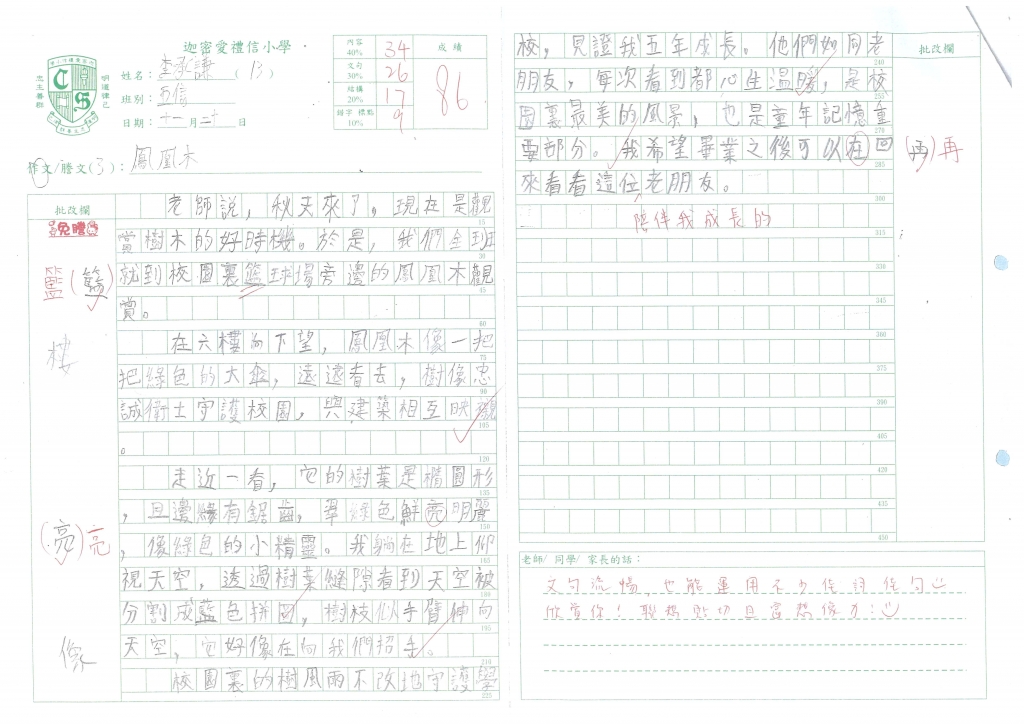 迦密愛禮信小學
內容 40% 34
文句 30% 26
結構 20% 17
錯字 標點 10% 9
成績
86
明道律己
忠主善群
姓名：李承謙 (13)
班別：五信
日期：十一月二十日
作文/謄文(3)：鳳凰木
批改欄
免謄
籃(籃)
樓
(亮)亮
像
老師說，秋天來了。現在是觀
賞樹木的好時機。於是，我們全班
就到校園裏籃球場旁邊的鳳凰木觀
賞。
在六樓向下望，鳳凰木像一把
把綠色的大傘，遠遠看去，樹像忠
誠衞士守護校園，與建築相互映襯
。
走近一看，它的樹葉是橢圓形
，且邊緣有鋸齒，翠綠色鮮亮明麗
，像綠色的小精靈。我躺在地上仰
視天空，透過樹葉縫隙看到天空被
分割成藍色拼圖，樹枝似手臂伸向
天空，它好像在向我們招手。
校園裏的樹風雨不改地守護學
15
30
45
60
75
90
105
120
135
150
165
180
195
210
225
校，見證我五年成長。他們如同老
朋友，每次看到都心生溫暖，是校
園裏最美的風景，也是童年記憶重
要部分。我希望畢業之後可以在回
來看看這位老朋友。
陪伴我成長的
240
255
270
285
300
315
330
345
360
375
390
405
420
435
450
批改欄
(再)再
老師/ 同學/ 家長的話：
文句流暢，也能運用不少佳詞佳句
欣賞你！聯想貼切且富想像力：